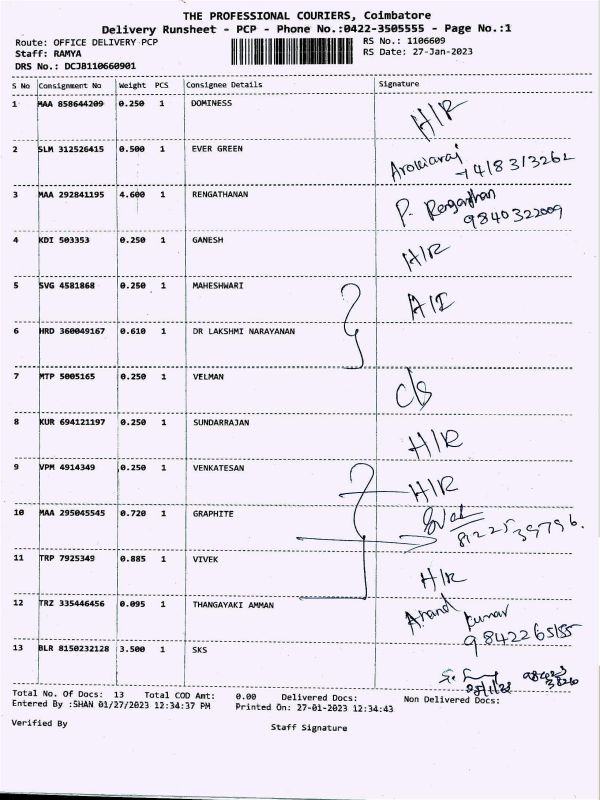 THE PROFESSIONAL COURIERS, Coimbatore
Delivery Runsheet - PCP - Phone No.:0422-3505555 - Page No.:1
Route: OFFICE DELIVERY PCP RS No.: 1106609
Staff: RAMYA RS Date: 27-Jan-2023
DRS No.: DCJB110660901
S No Consignment No Weight PCS Consignee Details Signature
1 MAA 858644209 0.250 1 DOMINESS H/R
2 SLM 312526415 0.500 1 EVER GREEN Arokiaraj
3 MAA 292841195 4.600 1 RENGATHANAN P. Rengathan
9840322009
4 KDI 503353 0.250 1 GANESH H/R
5 SVG 4581868 0.250 1 MAHESHWARI A/I
6 HRD 360049167 0.610 1 DR LAKSHMI NARAYANAN
7 MTP 5005165 0.250 1 VELMAN C/S
8 KUR 694121197 0.250 1 SUNDARRAJAN H/R
9 VPM 4914349 0.250 1 VENKATESAN H/R
10 MAA 295045545 0.720 1 GRAPHITE
8122539796.
11 TRP 7925349 0.885 1 VIVEK H/R
12 TRZ 335446456 0.095 1 THANGAYAKI AMMAN Anand Kumar
9842265155
13 BLR 8150232128 3.500 1 SKS
Total No. Of Docs: 13 Total COD Amt: 0.00 Delivered Docs: Non Delivered Docs:
Entered By :SHAN 01/27/2023 12:34:37 PM Printed On: 27-01-2023 12:34:43
Verified By Staff Signature